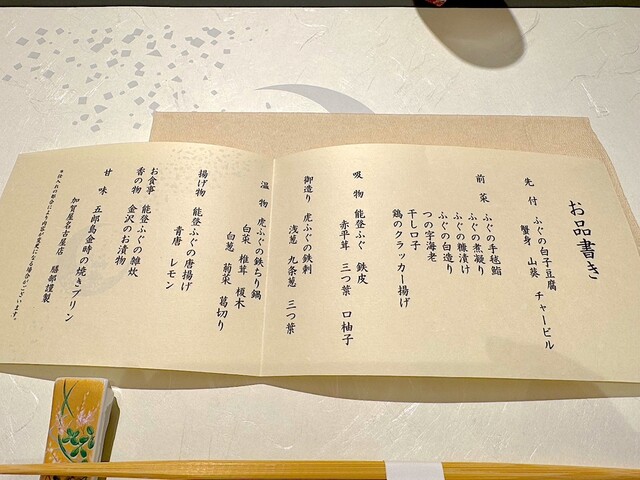 お品書き
先付 ふぐの白子豆腐
蟹身 山葵 チャービル
前菜 ふぐの手毬鮨
ふぐの煮凝り
ふぐの糠漬け
ふぐの白造り
つの字海老
干し口子
鶏のクラッカー揚げ
吸物 能登ふぐ 鉄皮
赤平茸 三つ葉 口柚子
御造り 虎ふぐの鉄刺
浅葱 九条葱 三つ葉
温物 虎ふぐの鉄ちり鍋
白菜 椎茸 榎木
白葱 菊菜 葛切り
揚げ物 能登ふぐの唐揚げ
青唐 レモン
お食事 能登ふぐの雑炊
香の物 金沢のお漬物
甘味 五郎島金時の焼きプリン
加賀屋名古屋店 膳部謹製
※仕入れの都合により内容が変更になる場合がございます。